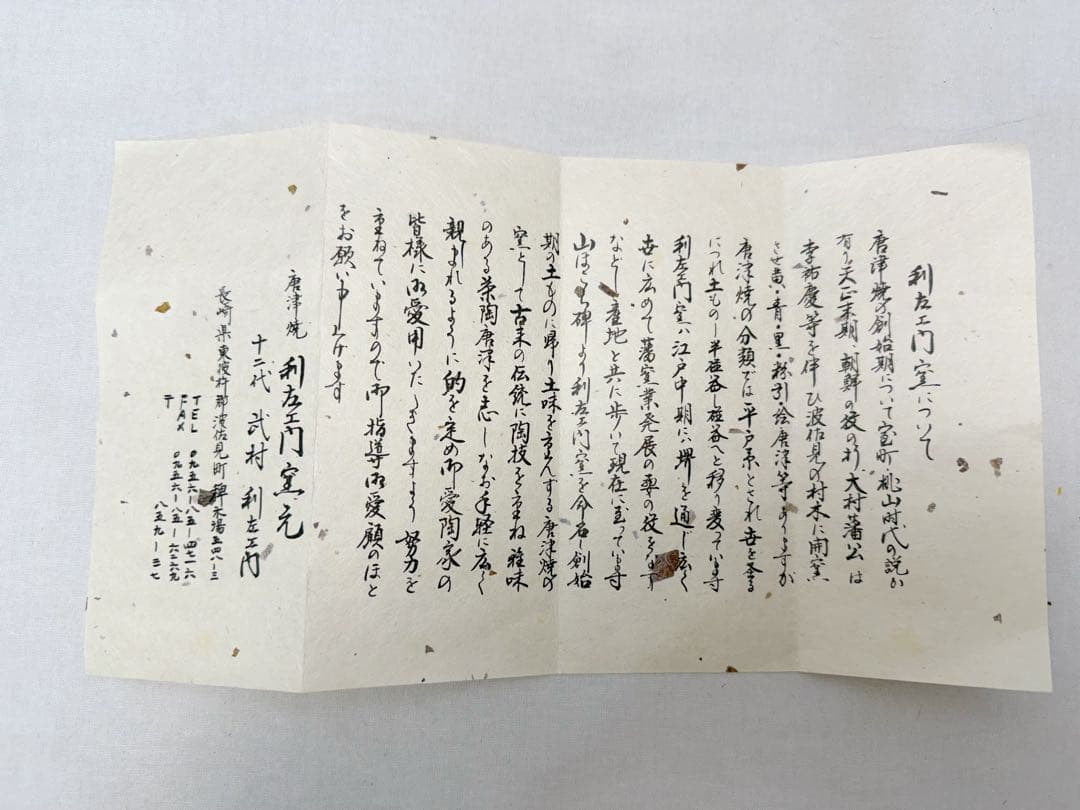 利左エ門窯について
唐津焼の創始期について室町桃山時代の説が
有り天正末期 朝鮮の役の折 大村藩公は
李祐慶等を伴ひ波佐見の村木に開窯
させ黄・青・黒・粉引・絵唐津等ありますが
唐津焼の分類では平戸系とされ世を登る
につれ土もの〜半磁器〜磁器へと移り変っています
利左エ門窯ハ江戸中期に堺を通じ広く
世に広めて藩窯業発展の の役をなす
などし産地と共に歩いて現在に至っています
山ほこら碑より利左エ門窯を命名し創始
期の土ものに帰り土味を重んずる唐津焼の
窯として古来の伝統に陶技を重ね雅味
のある茶陶唐津を志しなお手軽に広く
親しまれるように的を定め御愛陶家の
皆様に御愛用いただきますよう 努力を
重ねていますので御指導御愛顧のほど
をお願い申し上げます
唐津焼 利左エ門窯元
十三代 武村 利左エ門
長崎県東彼杵郡波佐見町稗木場郷五四八-三
TEL 〇九五六-八五-四七一六
FAX 〇九五六-八五-六二六九
〒 八五九-三七